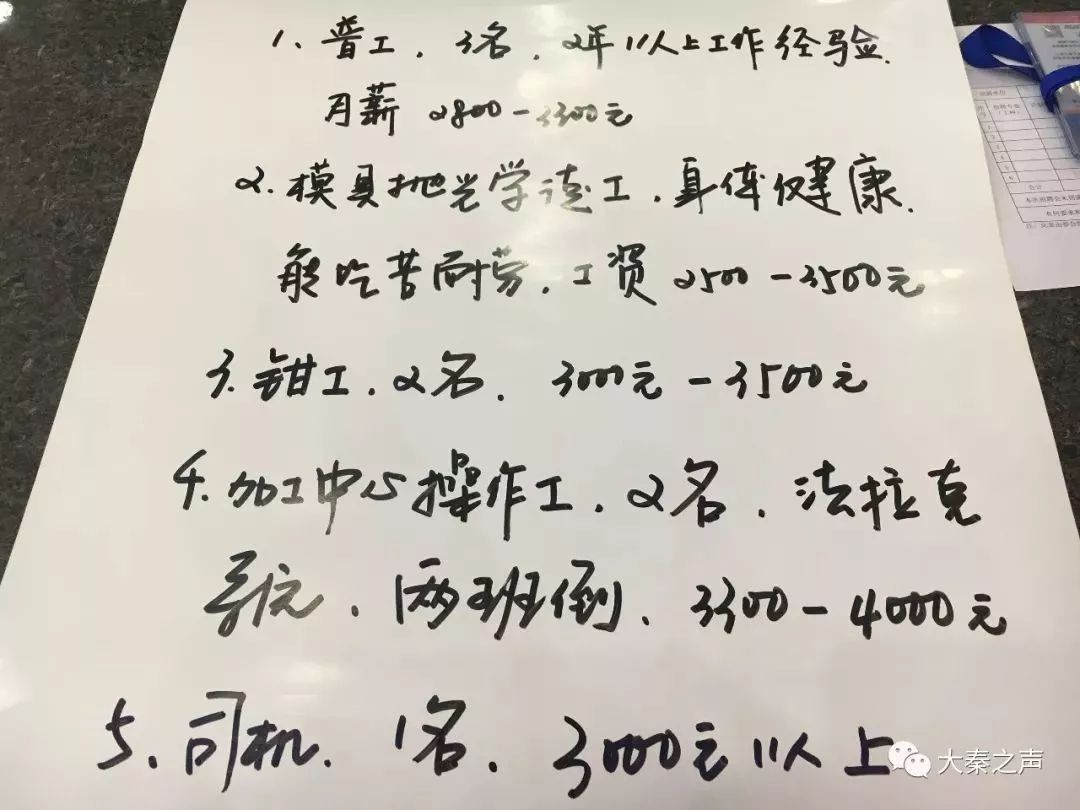 1、普工，3名，2年以上工作经验.
月薪 2800-3300元
2.模具抛光学徒工，身体健康.
能吃苦耐劳.工资2500-3500元
3.钳工.2名. 3000元-3500元
4.加工中心操作工.2名.法拉克
系统、两班倒、3300-4000元
5、司机.1名.3000元以上
大秦之声
合计